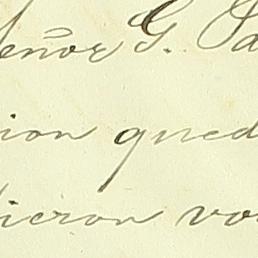 eñor G. Pa
ion qued
icron vo